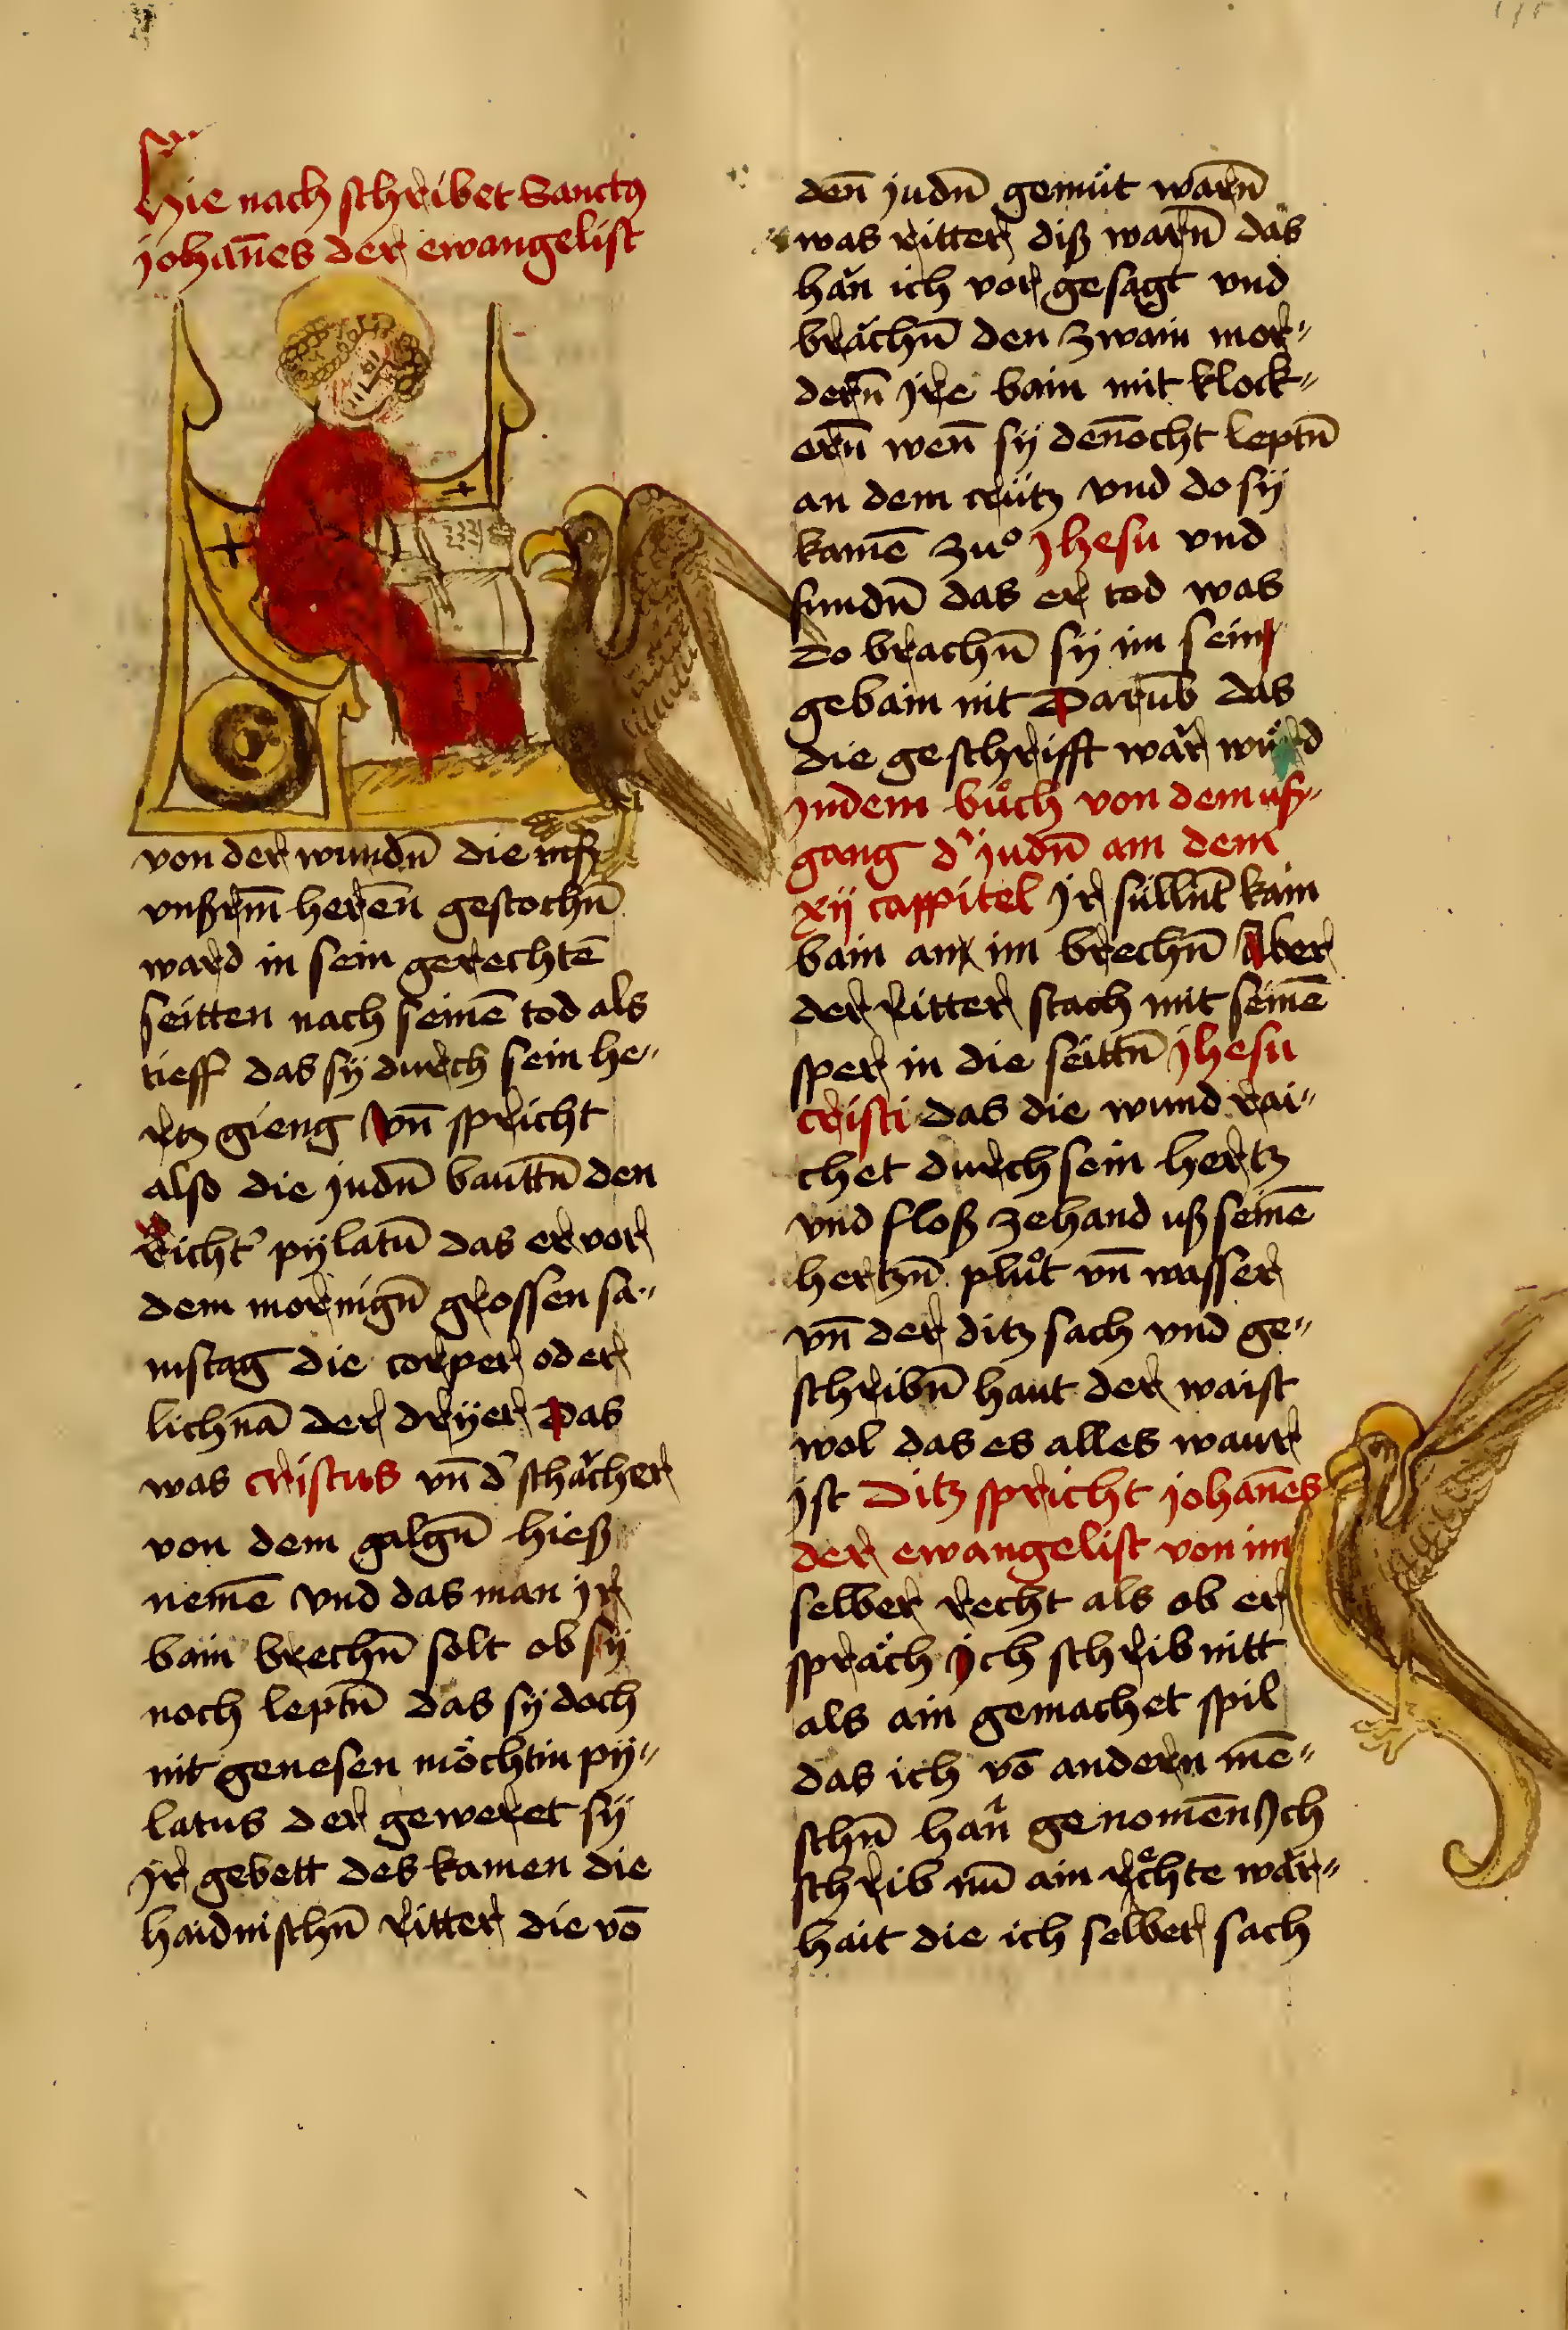 Hie nach schribet Sanctus
johañes der ewangelist
von der wundñ die
vnßrm̄ herēn gestochñ
ward in sein gerechtē
seitten nach seinē tod als
tieff das sÿ durch sein he„
rtz gieng Vñ spricht
also die judñ bauttñ den
Richt' pÿlatū das er vor
dem mornigñ grossen sa„
mstag die corper oder
lichnā der drÿer Das
was cristus vñ d' schächer
von dem galgñ hieß
nemē vnd das man jr
bain brechñ solt ob sÿ
noch leptñ das sÿ doch
nit genesen möchtin pÿ„
latus der geweret sÿ
jr gebett des kamen die
haidnischñ ritter die vō
deñ judñ gemüt warñ
was ritter diß warñ das
hän ich vor gesagt vnd
brächñ den zwain mor„
derñ jre bain mit klock„
erñ weñ sÿ deñocht leptñ
an dem crütz vnd do sÿ
kamē zuͦ jhesu vnd
fundñ das er tod was
do brachñ sÿ im sein
gebain nit Darūb das
die geschrifft wär würd
jndem buͦch von dem uß„
gang d' judñ am dem
xij cappitel jr süllñt kain
bain an im brechñ Aber
der ritter stach mit seinē
sper in die seittñ jhesu
cristi das die wund rai„
chet durch sein hertz
vnd floß zehand uß seinē
hertzñ pluͦt vñ wasser
vñ der ditz sach vnd ge„
schribñ haut der waist
wol das es alles waur
jst Ditz spricht johañes
der ewangelist von im
selber recht als ob er
spräch jch schrib nitt
als ain gemachet spil
das ich vō andern mē„
schñ hän genomen Jch
schrib nū ain rechte wär„
hait die ich selber sach